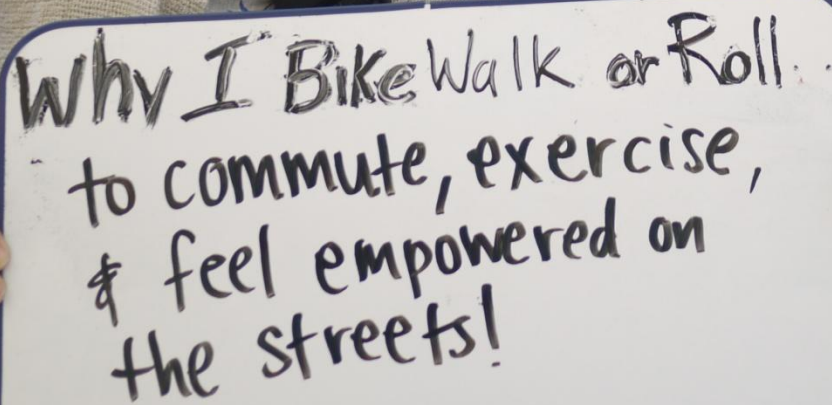 Why I Bike Walk or Roll..
to commute, exercise,
& feel empowered on
the streets!